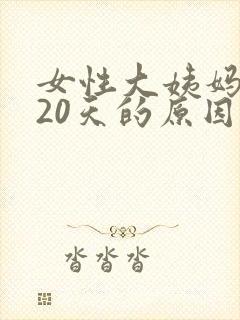 女性大姨妈
20天的原因
沓沓沓